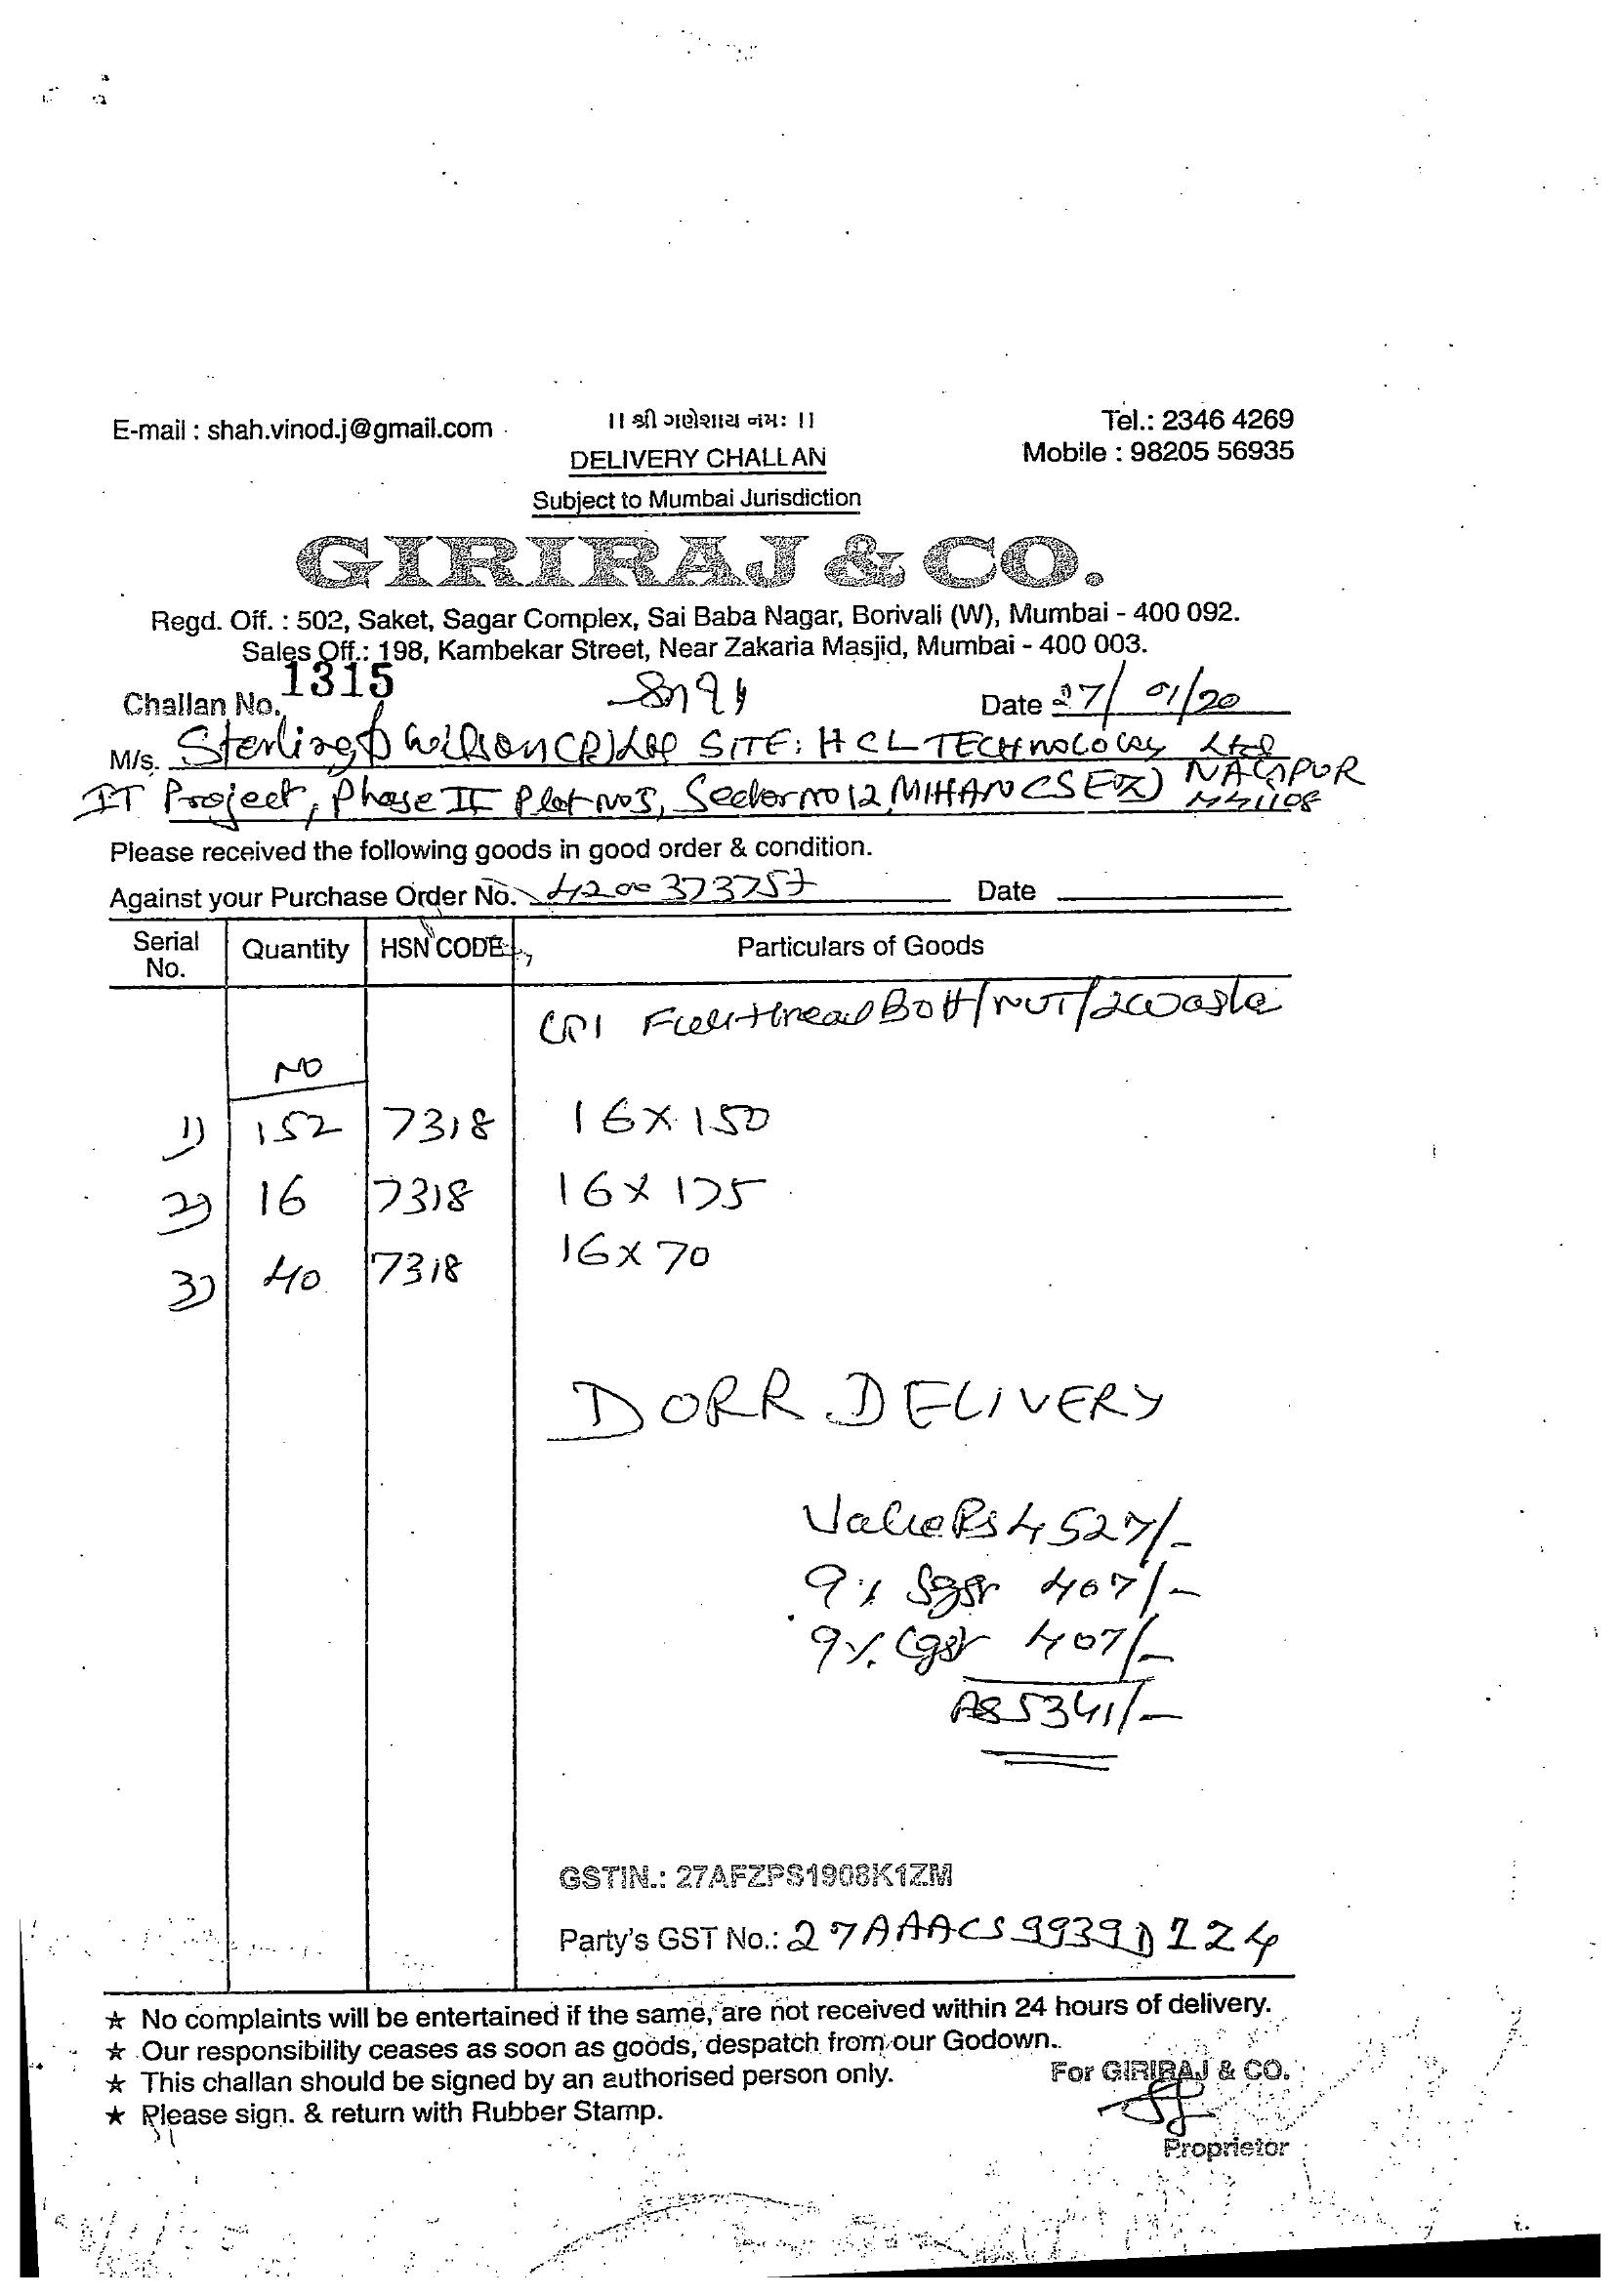 E-mail : shah.vinod.j@gmail.com
।। શ્રી ગણેશાય નમઃ ।।
Tel.: 2346 4269
DELIVERY CHALLAN
Mobile : 98205 56935
Subject to Mumbai Jurisdiction
GIRIRAJ & CO.
Regd. Off. : 502, Saket, Sagar Complex, Sai Baba Nagar, Borivali (W), Mumbai - 400 092.
Sales Off.: 198, Kambekar Street, Near Zakaria Masjid, Mumbai - 400 003.
Challan No. 1315
Date 27/01/20
M/s. Sterling & Wilson (P) Ltd SITE: HCL TECHNOLOGY Ltd
IT Project, Phase II Plot No 5, Sector no 12, MIHAN (SEZ) NAGPUR
441108
Please received the following goods in good order & condition.
Against your Purchase Order No. 4200373757 Date
Serial No. Quantity HSN CODE Particulars of Goods
Full thread Bolt/NUT/2
NO
1) 152 7318 16 x 150
2) 16 7318 16 x 175
3) 40 7318 16 x 70
DORR DELIVERY
Value Rs 4527/-
9% Sgst 407/-
9% Cgst 407/-
RS 5341/-
GSTIN.: 27AFZPS1908K1ZM
Party's GST No.: 27AAACS9939D1Z4
★ No complaints will be entertained if the same, are not received within 24 hours of delivery.
★ Our responsibility ceases as soon as goods, despatch from our Godown.
★ This challan should be signed by an authorised person only.
For GIRIRAJ & CO.
★ Please sign. & return with Rubber Stamp.
Proprietor